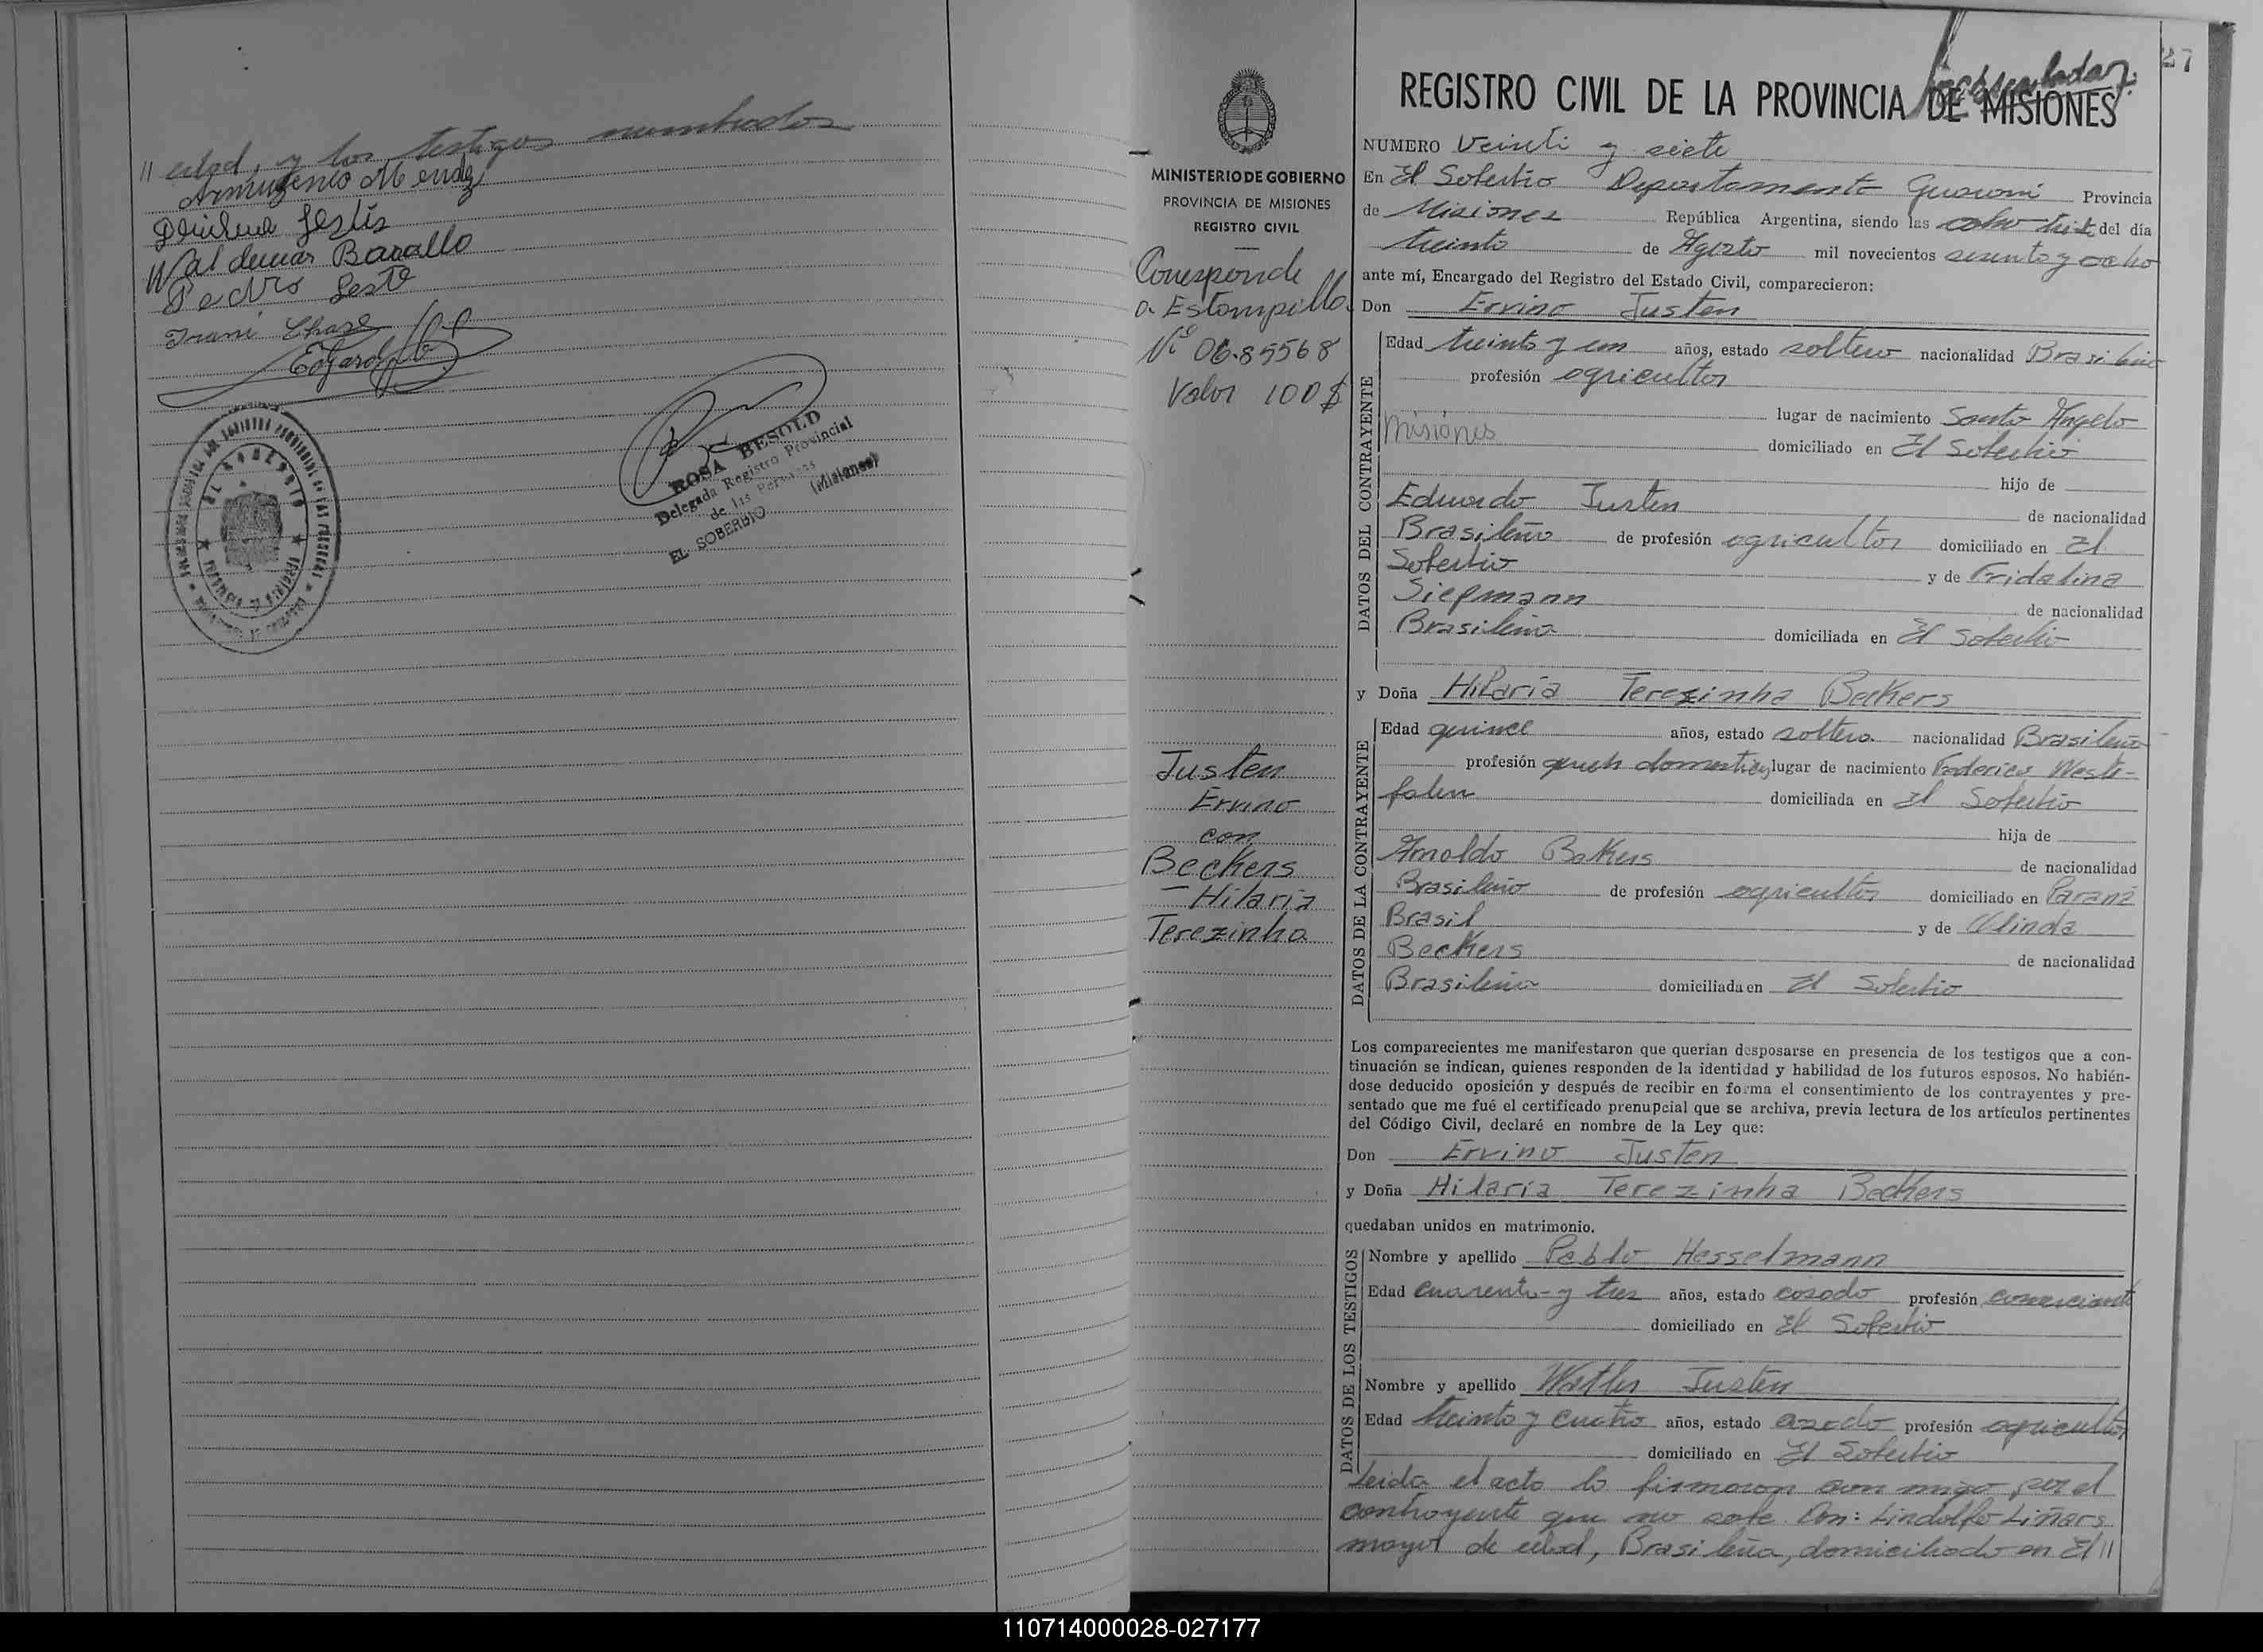 // edad, y los testigos nombrados
Armugenio Mendez
Waldemar Barallo
Pedro Sesto
Irani Chase
Edgard
ROSA BESOLD
Delegada Registro Provincial
de las Personas
EL SOBERBIO (Misiones)
EL SOBERBIO
27
REGISTRO CIVIL DE LA PROVINCIA DE MISIONES
MINISTERIO DE GOBIERNO
PROVINCIA DE MISIONES
REGISTRO CIVIL
Corresponde
a Estampilla
Nº 06.85568
Valor 100 $
Justen
Ervino
con
Beckers
Hilaria
Terezinha
NUMERO Veinti y siete
En El Soberbio Departamento Guarani Provincia
de Misiones República Argentina, siendo las ocho del día
treinta de Agosto mil novecientos sesenta y ocho
ante mí, Encargado del Registro del Estado Civil, comparecieron:
Don Ervino Justen
DATOS DEL CONTRAYENTE
Edad treinta y un años, estado soltero nacionalidad Brasileño
profesión agricultor
lugar de nacimiento Santo Angelo
Misiones domiciliado en El Soberbio
hijo de
Eduardo Justen de nacionalidad
Brasileño de profesión agricultor domiciliado en El
Soberbio y de Fridalina
Siepmann de nacionalidad
Brasileña domiciliada en El Soberbio
y Doña Hilaria Terezinha Beckers
DATOS DE LA CONTRAYENTE
Edad quince años, estado soltera nacionalidad Brasileña
profesión queh domesticos lugar de nacimiento Federico West-
falen domiciliada en El Soberbio
hija de
Arnoldo Bekers de nacionalidad
Brasileño de profesión agricultor domiciliado en Paraná
Brasil y de Olinda
Beckers de nacionalidad
Brasileña domiciliada en El Soberbio
Los comparecientes me manifestaron que querían desposarse en presencia de los testigos que a con-
tinuación se indican, quienes responden de la identidad y habilidad de los futuros esposos. No habién-
dose deducido oposición y después de recibir en forma el consentimiento de los contrayentes y pre-
sentado que me fué el certificado prenupcial que se archiva, previa lectura de los artículos pertinentes
del Código Civil, declaré en nombre de la Ley que:
Don Ervino Justen
y Doña Hilaria Terezinha Beckers
quedaban unidos en matrimonio.
DATOS DE LOS TESTIGOS
Nombre y apellido Pablo Hesselmann
Edad cuarenta y tres años, estado casado profesión comerciante
domiciliado en El Soberbio
Nombre y apellido Walter Justen
Edad treinta y cuatro años, estado casado profesión agricultor
domiciliado en El Soberbio
Leida el acta la firmaron con migo por el
contrayente que no sabe Don: Lindolfo Liñars
mayor de edad, Brasileño, domiciliado en El //
110714000028-027177